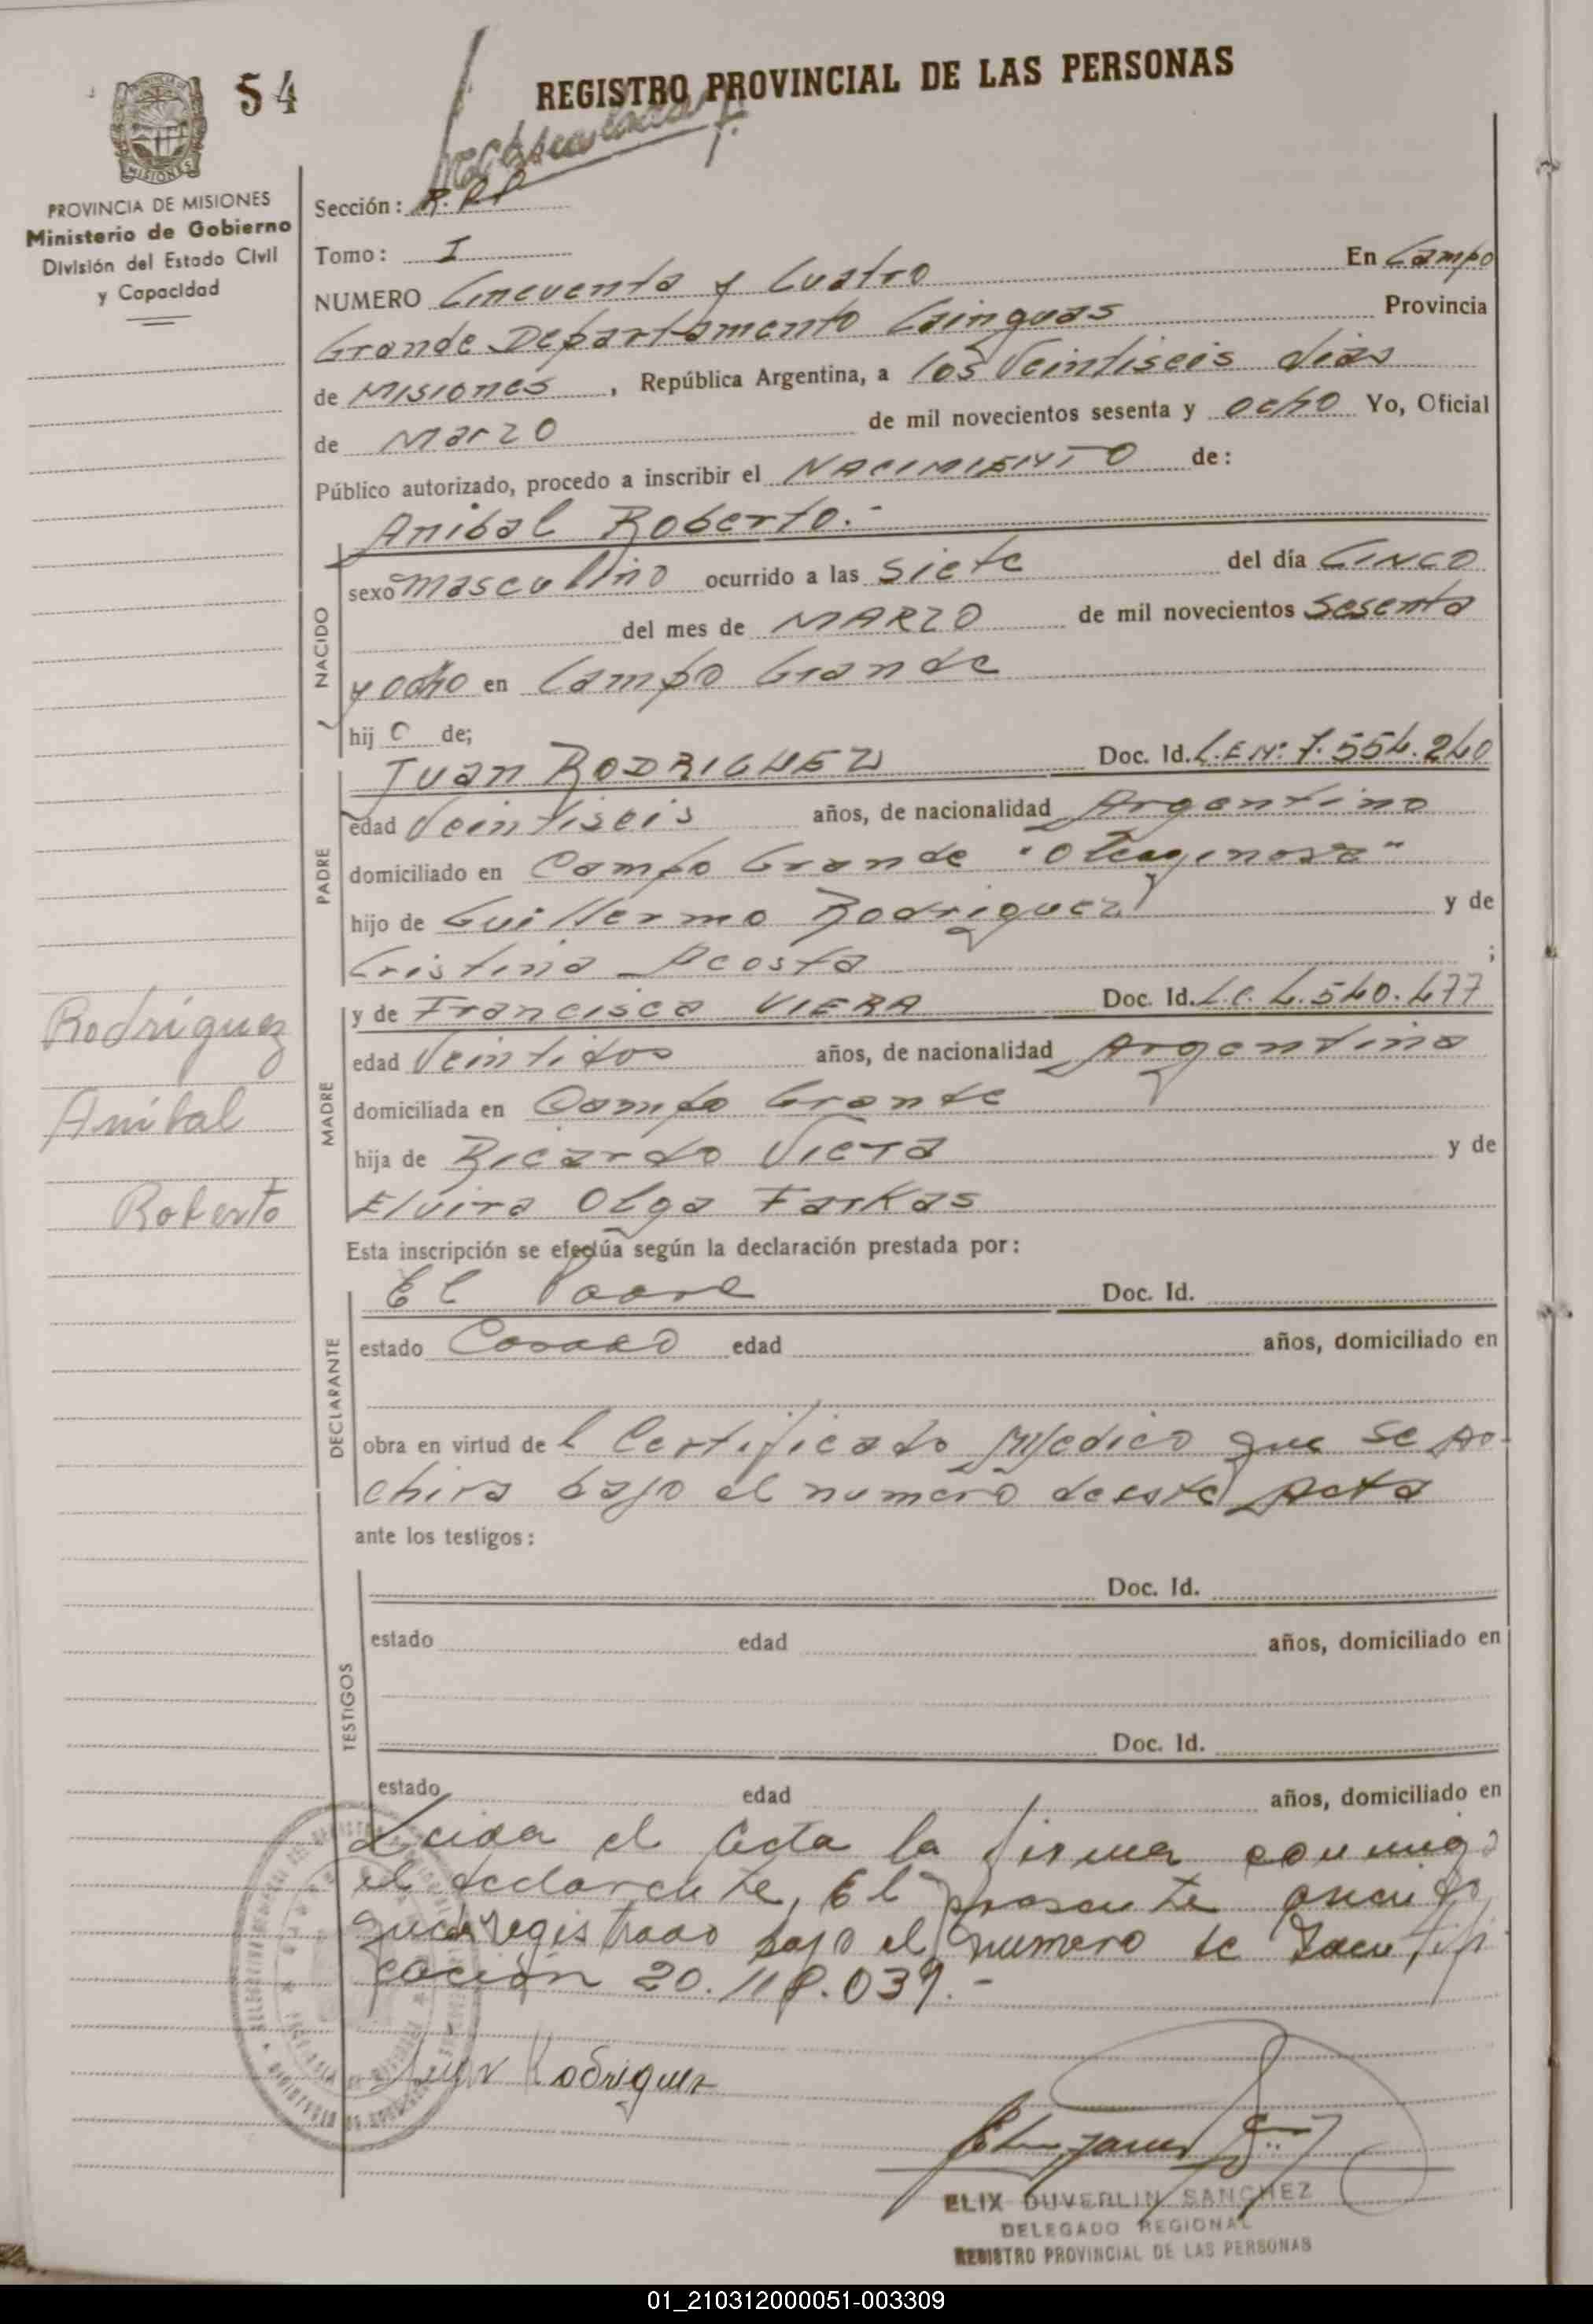 54
REGISTRO PROVINCIAL DE LAS PERSONAS
MISIONES
PROVINCIA DE MISIONES
Ministerio de Gobierno
División del Estado Civil
y Capacidad
Sección: R.PP
Tomo: I
NUMERO Cincuenta y Cuatro En Campo
Grande Departamento Cainguas Provincia
de Misiones, República Argentina, a los Veintiseis dias
de Marzo de mil novecientos sesenta y ocho Yo, Oficial
Público autorizado, procedo a inscribir el NACIMIENTO de:
Anibal Roberto.-
NACIDO
sexo masculino ocurrido a las siete del día CINCO
del mes de MARZO de mil novecientos sesenta
y ocho en Campo Grande
hijo de;
PADRE
Juan RODRIGUEZ Doc. Id. L.E Nº 7.554.240
edad Veintiseis años, de nacionalidad Argentino
domiciliado en Campo Grande "Oleaginosa"
hijo de Guillermo Rodriguez y de
Cristina Acosta ;
MADRE
y de Francisca VIERA Doc. Id. L.C. 4.540.477
edad Veintidos años, de nacionalidad Argentina
domiciliada en Campo Grande
hija de Ricardo Viera y de
Elvira Olga Farkas
Rodríguez
Aníbal
Roberto
Esta inscripción se efectúa según la declaración prestada por:
DECLARANTE
El Padre Doc. Id.
estado Casado edad años, domiciliado en
obra en virtud del Certificado Medico que se Ar-
chiva bajo el numero de esta Acta
ante los testigos:
TESTIGOS
Doc. Id.
estado edad años, domiciliado en
Doc. Id.
estado edad años, domiciliado en
Leida el Acta la firma conmigo
el declarante, El presente
queda registrado bajo el numero de Identifi
cación 20.118.039.-
Juan Rodriguez
ELIX DUVERLIN SANCHEZ
DELEGADO REGIONAL
REGISTRO PROVINCIAL DE LAS PERSONAS
01_210312000051-003309